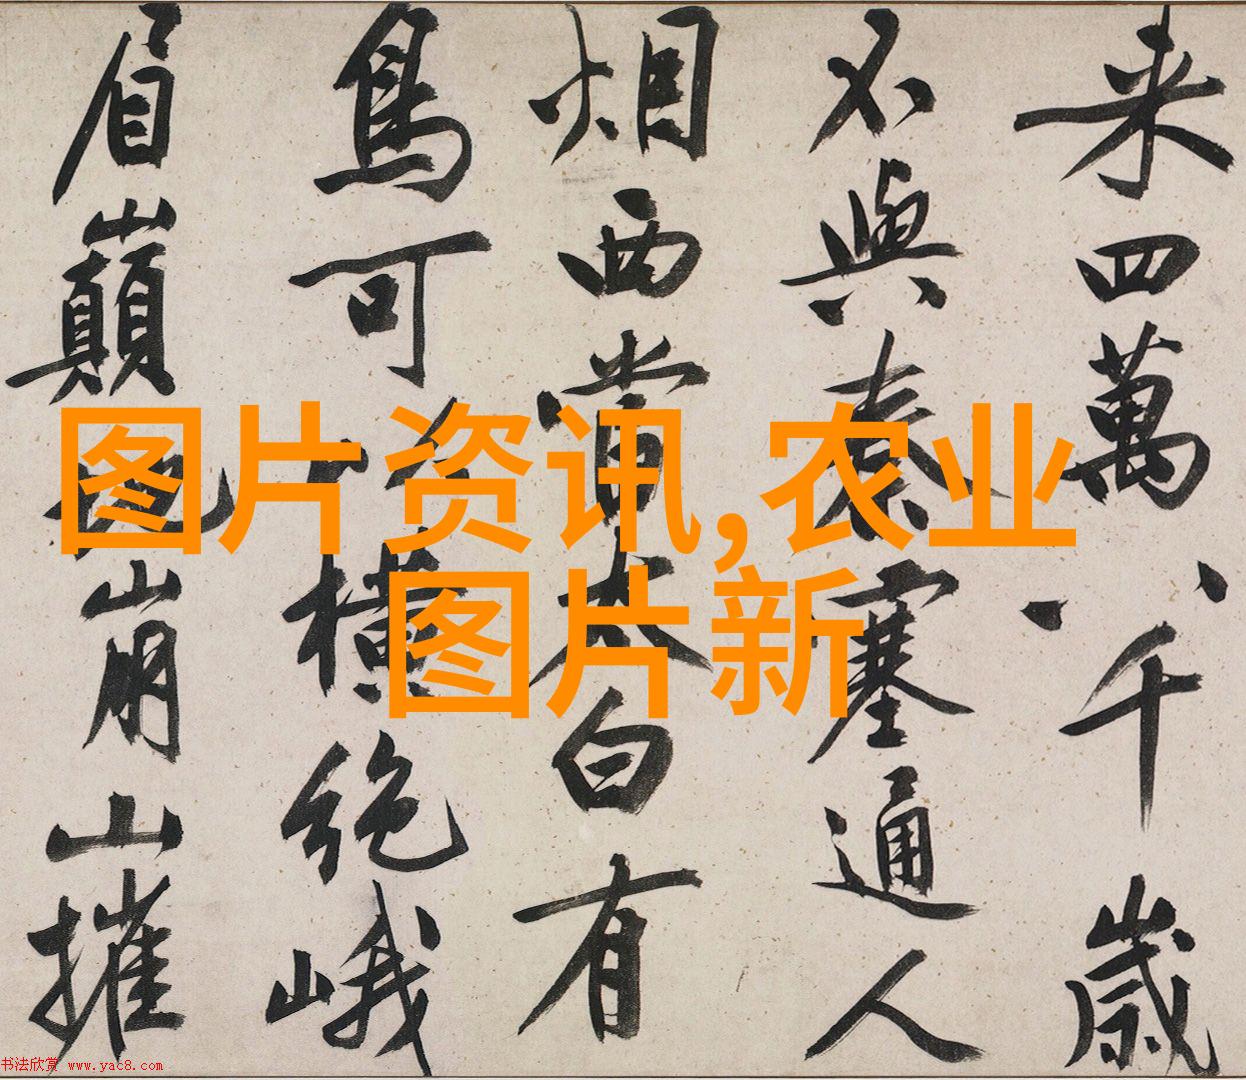 来四萬八千歲
不與秦塞通人
烟西當太白有
鳥可以橫絕峨
眉巔地崩山摧
图片资讯,农业
图片新
书法欣赏 www.yac8.com